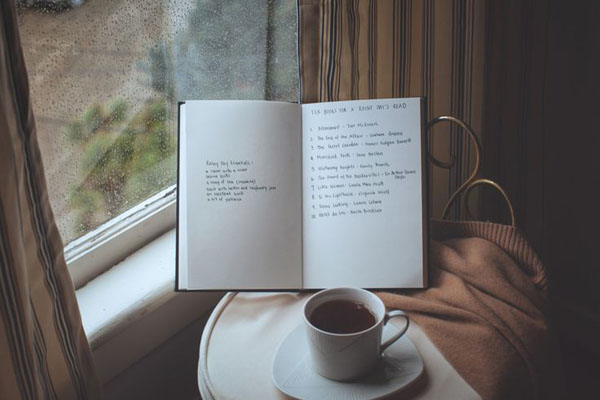 Rainy Day Essentials:
a room with a view
warm
a mug of tea (steaming)
toast with butter and raspberry jam
an excellent book
a bit of patience
TEN BOOKS FOR A RAINY DAY'S READ
1. Atonement - Ian McEwan
2. The End of the Affair - Graham Greene
3. The Secret Garden - Frances Hodgson Burnett
4. Mansfield Park - Jane Austen
5. Wuthering Heights - Emily Brontë
6. The Hound of the Baskervilles - Sir Arthur Conan
Doyle
7. Little Women - Louisa May Alcott
8. To the Lighthouse - Virginia Woolf
9.
10.